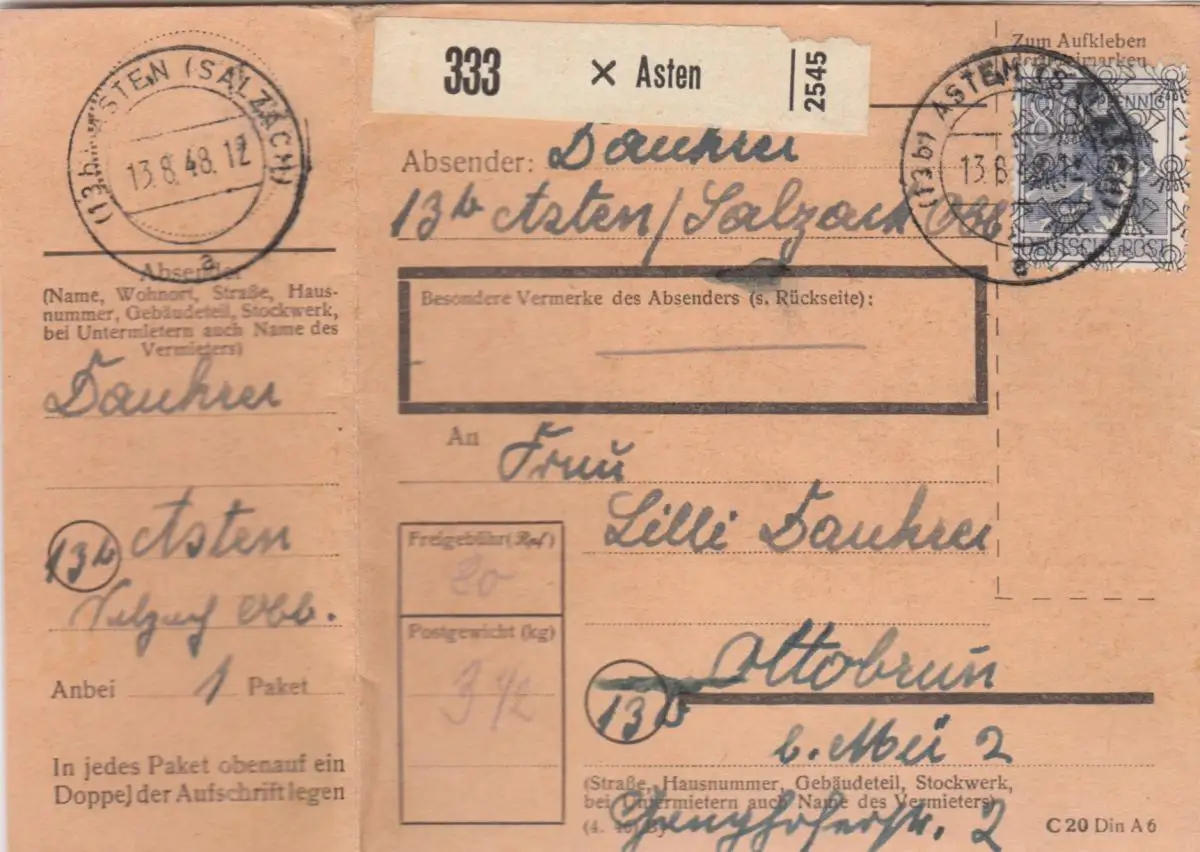 (13b) ASTEN (SALZACH)
13.8.48.12
a
Absender
(Name, Wohnort, Straße, Haus-
nummer, Gebäudeteil, Stockwerk,
bei Untermietern auch Name des
Vermieters)
Dauhrer
13b Asten
Salzach Obb.
Anbei 1 Paket
In jedes Paket obenauf ein
Doppel der Aufschrift legen
333 × Asten 2545
Absender: Dauhrer
13b Asten/Salzach Obb
Besondere Vermerke des Absenders (s. Rückseite):
An Frau
Lilli Dauhrer
Freigebühr (Rpf)
80
Postgewicht (kg)
3 1/2
Ottobrun
13b
b. Mü 2
(Straße, Hausnummer, Gebäudeteil, Stockwerk,
bei Untermietern auch Name des Vermieters)
2
C 20 Din A 6
Zum Aufkleben
(13b) ASTEN (SALZACH)
13.8.
a
PFENNIG
DEUTSCHE POST